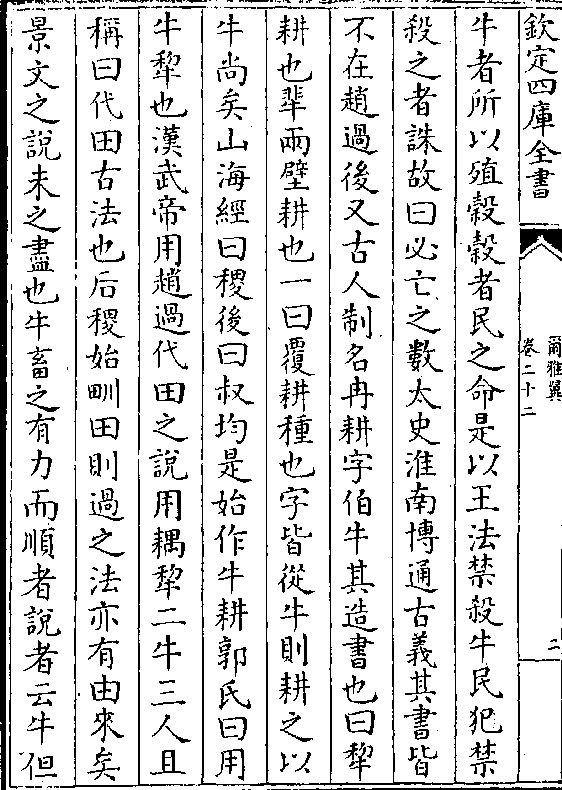 欽定四庫全書
爾雅翼
卷二十二
二
牛者所以殖穀穀者民之命是以王法禁殺牛民犯禁
殺之者誅故曰必亡之數太史淮南博通古義其書皆
不在趙過後又古人制名冉耕字伯牛其造書也曰犂
耕也辈兩壁耕也一曰覆耕種也字皆從牛則耕之以
牛尚矣山海經曰稷後曰叔均是始作牛耕郭氏曰用
牛犂也漢武帝用趙過代田之說用耦犂二牛三人且
稱曰代田古法也后稷始甽田則過之法亦有由來矣
景文之說未之盡也牛畜之有力而順者說者云牛但